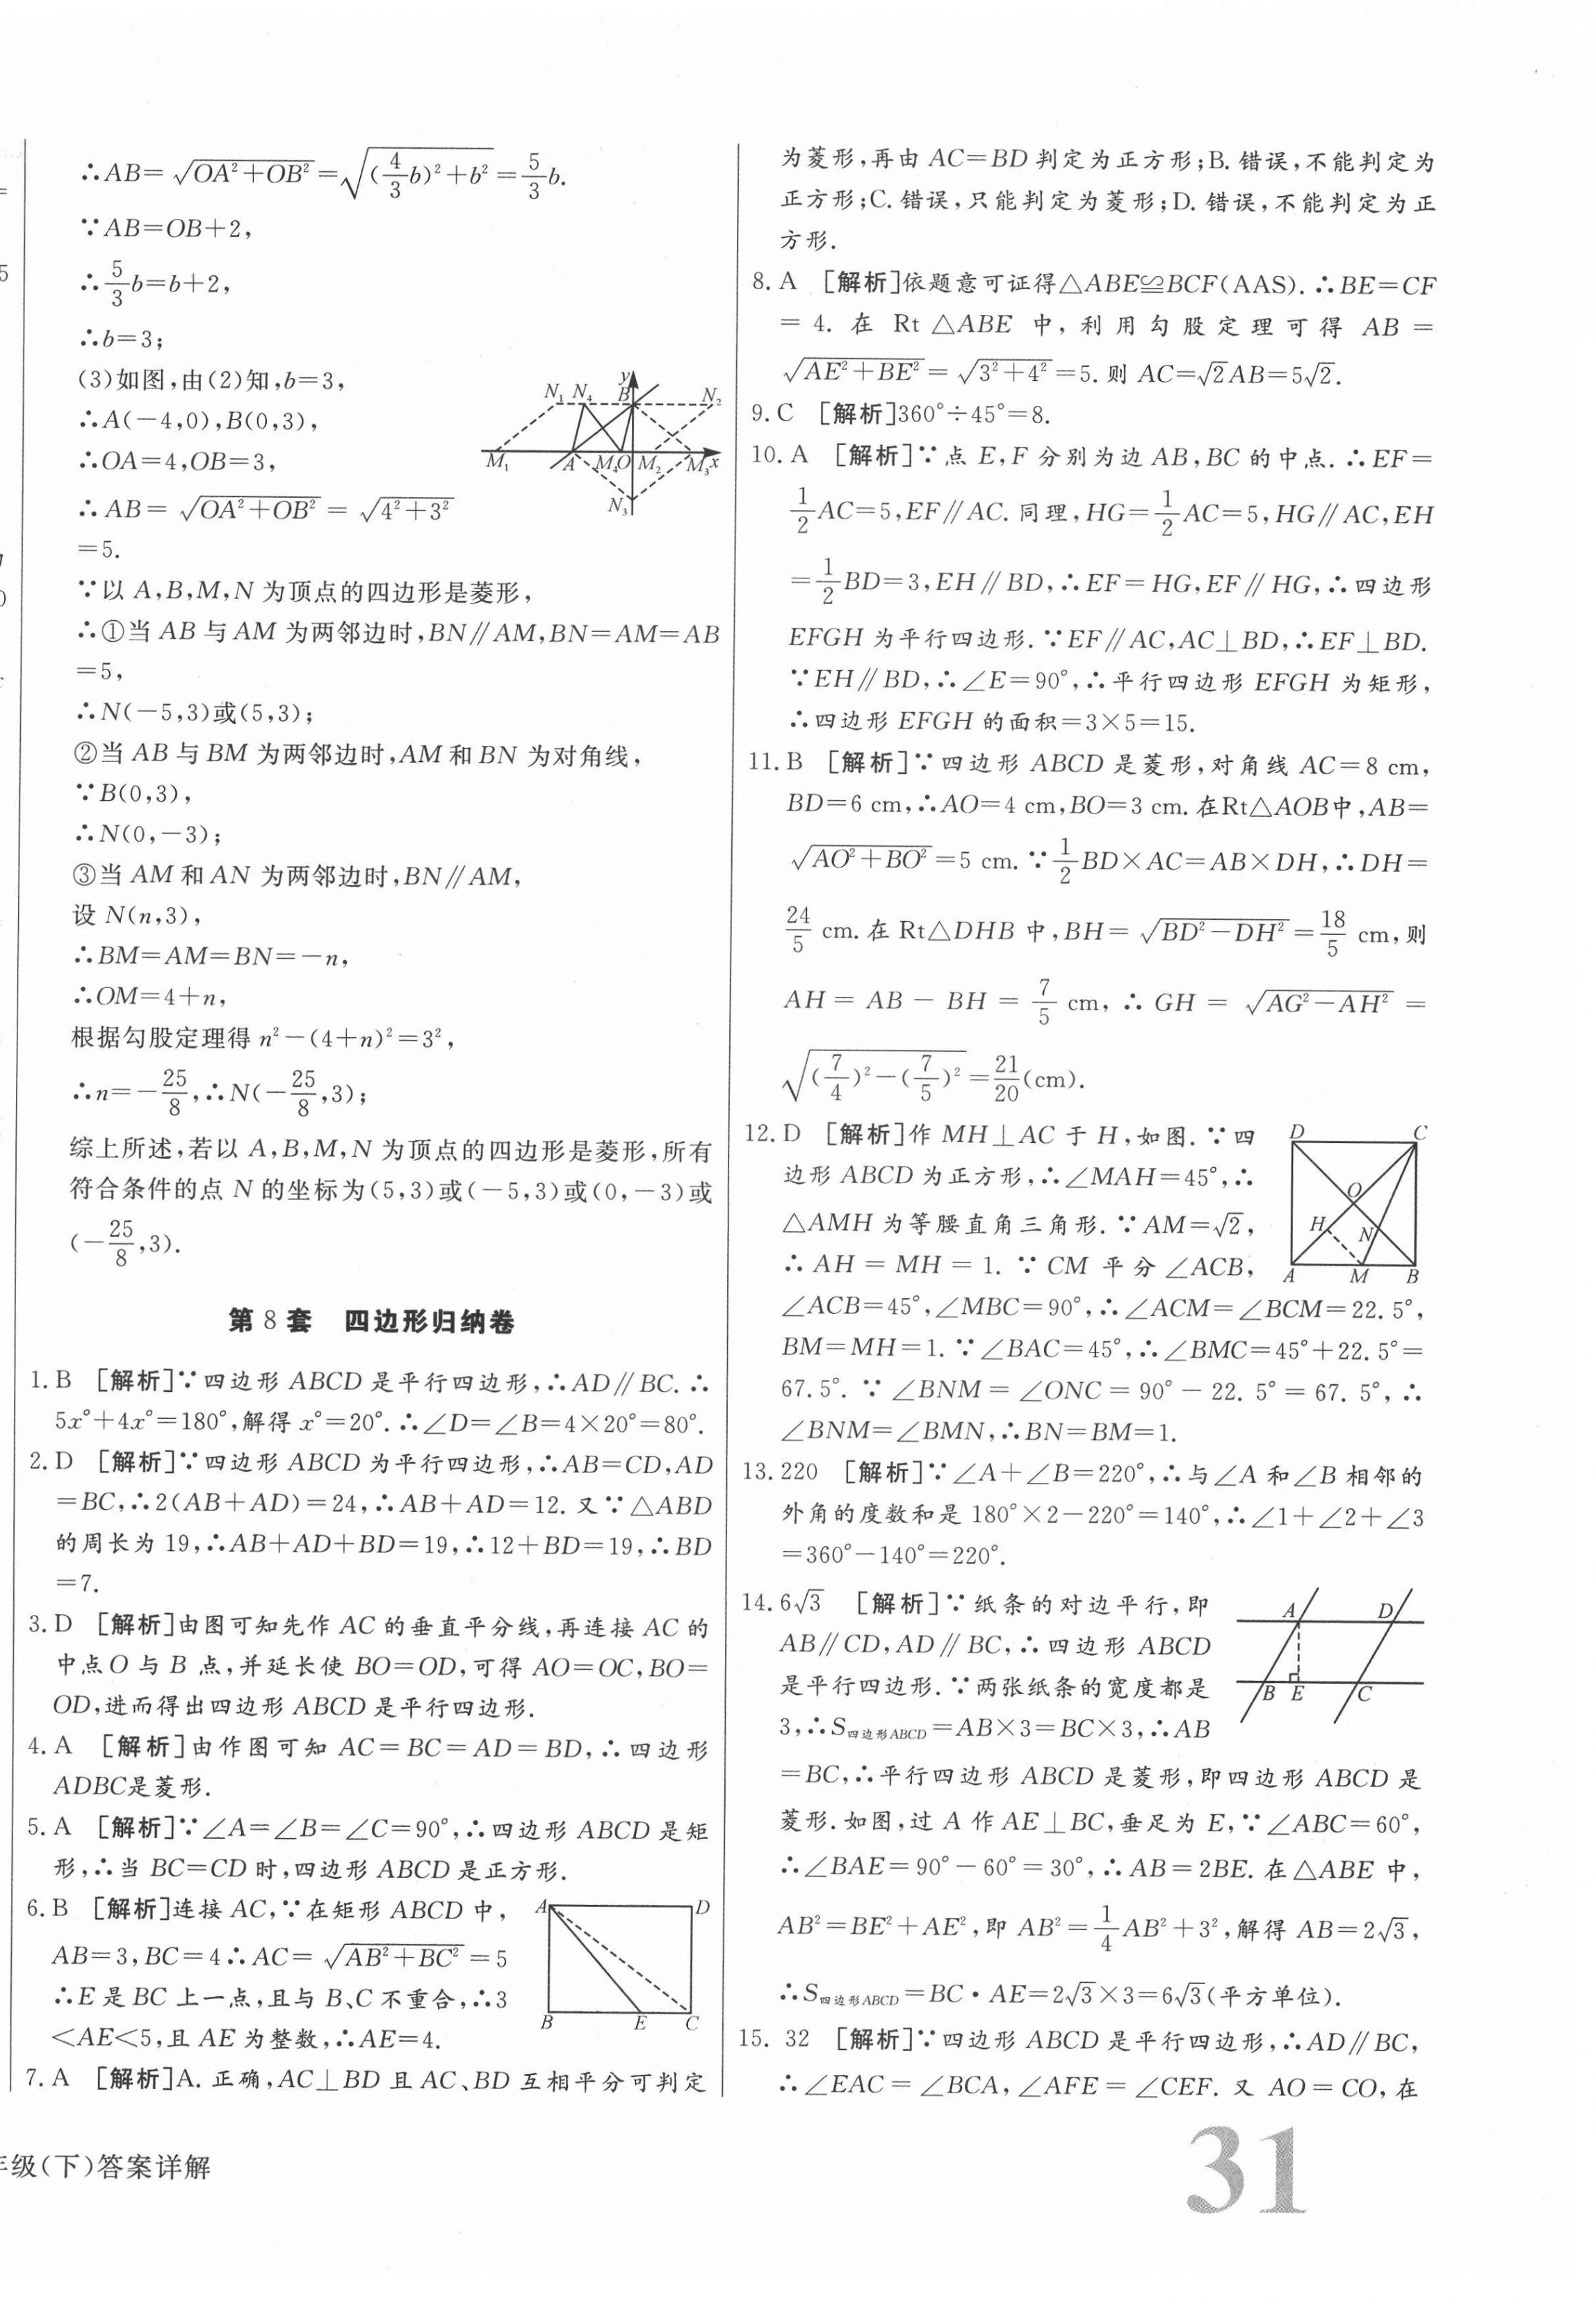 ∴AB=√(OA²+OB²)=√((4/3b)²+b²)=5/3b.
∵AB=OB+2,
∴5/3b=b+2,
∴b=3;
(3)如图,由(2)知,b=3,
∴A(-4,0),B(0,3),
∴OA=4,OB=3,
∴AB=√(OA²+OB²)=√(4²+3²)
=5.
y
N₁ N₄ B N₂
M₁ A M₄ O M₂ M₃ x
N₃
∵以 A,B,M,N 为顶点的四边形是菱形,
∴①当 AB 与 AM 为两邻边时,BN∥AM,BN=AM=AB
=5,
∴N(-5,3)或(5,3);
②当 AB 与 BM 为两邻边时,AM 和 BN 为对角线,
∵B(0,3),
∴N(0,-3);
③当 AM 和 AN 为两邻边时,BN∥AM,
设 N(n,3),
∴BM=AM=BN=-n,
∴OM=4+n,
根据勾股定理得 n²-(4+n)²=3²,
∴n=-25/8,∴N(-25/8,3);
综上所述,若以 A,B,M,N 为顶点的四边形是菱形,所有
符合条件的点 N 的坐标为(5,3)或(-5,3)或(0,-3)或
(-25/8,3).
第 8 套 四边形归纳卷
1. B [解析]∵四边形 ABCD 是平行四边形,∴AD∥BC.∴
5x°+4x°=180°,解得 x°=20°.∴∠D=∠B=4×20°=80°.
2. D [解析]∵四边形 ABCD 为平行四边形,∴AB=CD,AD
=BC,∴2(AB+AD)=24,∴AB+AD=12.又∵△ABD
的周长为 19,∴AB+AD+BD=19,∴12+BD=19,∴BD
=7.
3. D [解析]由图可知先作 AC 的垂直平分线,再连接 AC 的
中点 O 与 B 点,并延长使 BO=OD,可得 AO=OC,BO=
OD,进而得出四边形 ABCD 是平行四边形.
4. A [解析]由作图可知 AC=BC=AD=BD,∴四边形
ADBC是菱形.
5. A [解析]∵∠A=∠B=∠C=90°,∴四边形 ABCD 是矩
形,∴当 BC=CD 时,四边形 ABCD 是正方形.
6. B [解析]连接 AC,∵在矩形 ABCD 中,
AB=3,BC=4∴AC=√(AB²+BC²)=5
∴E 是 BC 上一点,且与 B、C 不重合,∴3
<AE<5,且 AE 为整数,∴AE=4.
A D
B E C
7. A [解析]A.正确,AC⊥BD 且 AC、BD 互相平分可判定
为菱形,再由 AC=BD 判定为正方形;B.错误,不能判定为
正方形;C.错误,只能判定为菱形;D.错误,不能判定为正
方形.
8. A [解析]依题意可证得△ABE≌BCF(AAS).∴BE=CF
=4.在 Rt△ABE 中,利用勾股定理可得 AB=
√(AE²+BE²)=√(3²+4²)=5.则 AC=√2AB=5√2.
9. C [解析]360°÷45°=8.
10. A [解析]∵点 E,F 分别为边 AB,BC 的中点.∴EF=
1/2AC=5,EF∥AC.同理,HG=1/2AC=5,HG∥AC,EH
=1/2BD=3,EH∥BD,∴EF=HG,EF∥HG,∴四边形
EFGH 为平行四边形.∵EF∥AC,AC⊥BD,∴EF⊥BD.
∵EH∥BD,∴∠E=90°,∴平行四边形 EFGH 为矩形,
∴四边形 EFGH 的面积=3×5=15.
11. B [解析]∵四边形 ABCD 是菱形,对角线 AC=8 cm,
BD=6 cm,∴AO=4 cm,BO=3 cm.在Rt△AOB中,AB=
√(AO²+BO²)=5 cm.∵1/2BD×AC=AB×DH,∴DH=
24/5 cm.在 Rt△DHB 中,BH=√(BD²-DH²)=18/5 cm,则
AH=AB-BH=7/5 cm,∴GH=√(AG²-AH²)=
√((7/4)²-(7/5)²)=21/20(cm).
12. D [解析]作 MH⊥AC 于 H,如图.∵四
边形 ABCD 为正方形,∴∠MAH=45°,∴
△AMH 为等腰直角三角形.∵AM=√2,
∴AH=MH=1.∵CM 平分∠ACB,
D C
O
H N
A M B
∠ACB=45°,∠MBC=90°,∴∠ACM=∠BCM=22.5°,
BM=MH=1.∵∠BAC=45°,∴∠BMC=45°+22.5°=
67.5°.∵∠BNM=∠ONC=90°-22.5°=67.5°,∴
∠BNM=∠BMN,∴BN=BM=1.
13. 220 [解析]∵∠A+∠B=220°,∴与∠A 和∠B 相邻的
外角的度数和是 180°×2-220°=140°,∴∠1+∠2+∠3
=360°-140°=220°.
14. 6√3 [解析]∵纸条的对边平行,即
AB∥CD,AD∥BC,∴四边形 ABCD
是平行四边形.∵两张纸条的宽度都是
3,∴S四边形ABCD=AB×3=BC×3,∴AB
A D
B E C
=BC,∴平行四边形 ABCD 是菱形,即四边形 ABCD 是
菱形.如图,过 A 作 AE⊥BC,垂足为 E,∵∠ABC=60°,
∴∠BAE=90°-60°=30°,∴AB=2BE.在△ABE 中,
AB²=BE²+AE²,即 AB²=1/4AB²+3²,解得 AB=2√3,
∴S四边形ABCD=BC·AE=2√3×3=6√3(平方单位).
15. 32 [解析]∵四边形 ABCD 是平行四边形,∴AD∥BC,
∴∠EAC=∠BCA,∠AFE=∠CEF.又 AO=CO,在
级(下)答案详解
31